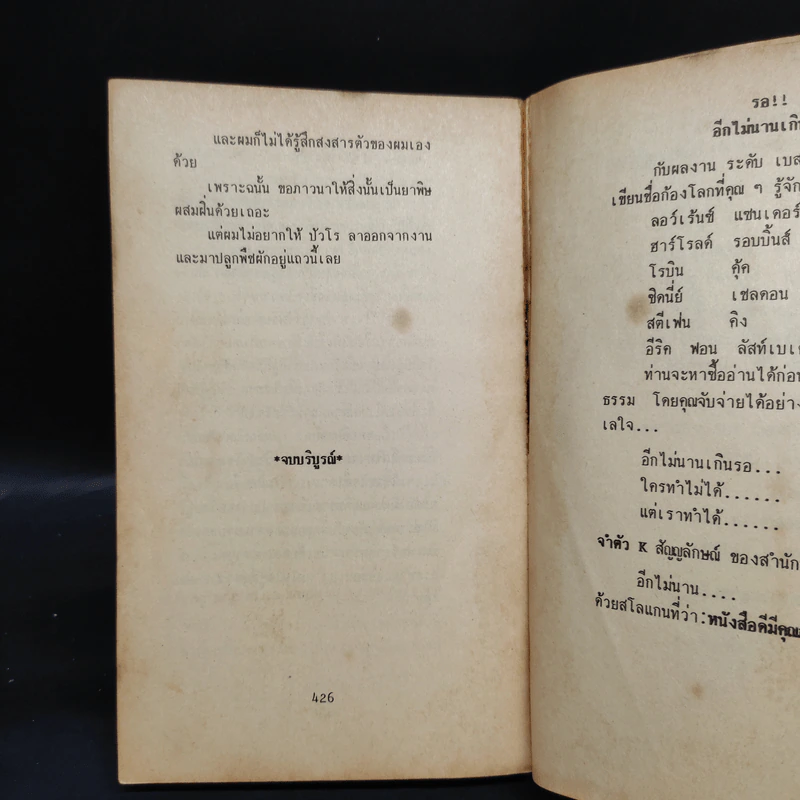 และผมก็ไม่ได้รู้สึกสงสารตัวของผมเอง
ด้วย
เพราะฉนั้น ขอภาวนาให้สิ่งนั้นเป็นยาพิษ
ผสมฝิ่นด้วยเถอะ
แต่ผมไม่อยากให้ ปัวโร ลาออกจากงาน
และมาปลูกพืชผักอยู่แถวนี้เลย
*จบบริบูรณ์*
426
รอ!!
อีกไม่นานเกิน
กับผลงาน ระดับ เบส
เขียนชื่อก้องโลกที่คุณ ๆ รู้จัก
ลอว์เร้นซ์ แซนเดอร์
ฮาร์โรลด์ รอบบิ้นส์
โรบิน คุ้ค
ซิดนี่ย์ เชลดอน
สตีเฟน คิง
อีริค ฟอน ลัสท์เบเด
ท่านจะหาซื้ออ่านได้ก่อน
ธรรม โดยคุณจับจ่ายได้อย่าง
เลใจ...
อีกไม่นานเกินรอ...
ใครทำไม่ได้......
แต่เราทำได้......
จำตัว K สัญญลักษณ์ ของสำนัก
อีกไม่นาน....
ด้วยสโลแกนที่ว่า:หนังสือดีมีคุณ